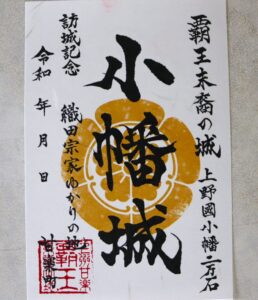 覇王末裔の城
上野國小幡二万石
小幡城
織田宗家ゆかりの地
訪城記念
令和 年 月 日
覇王